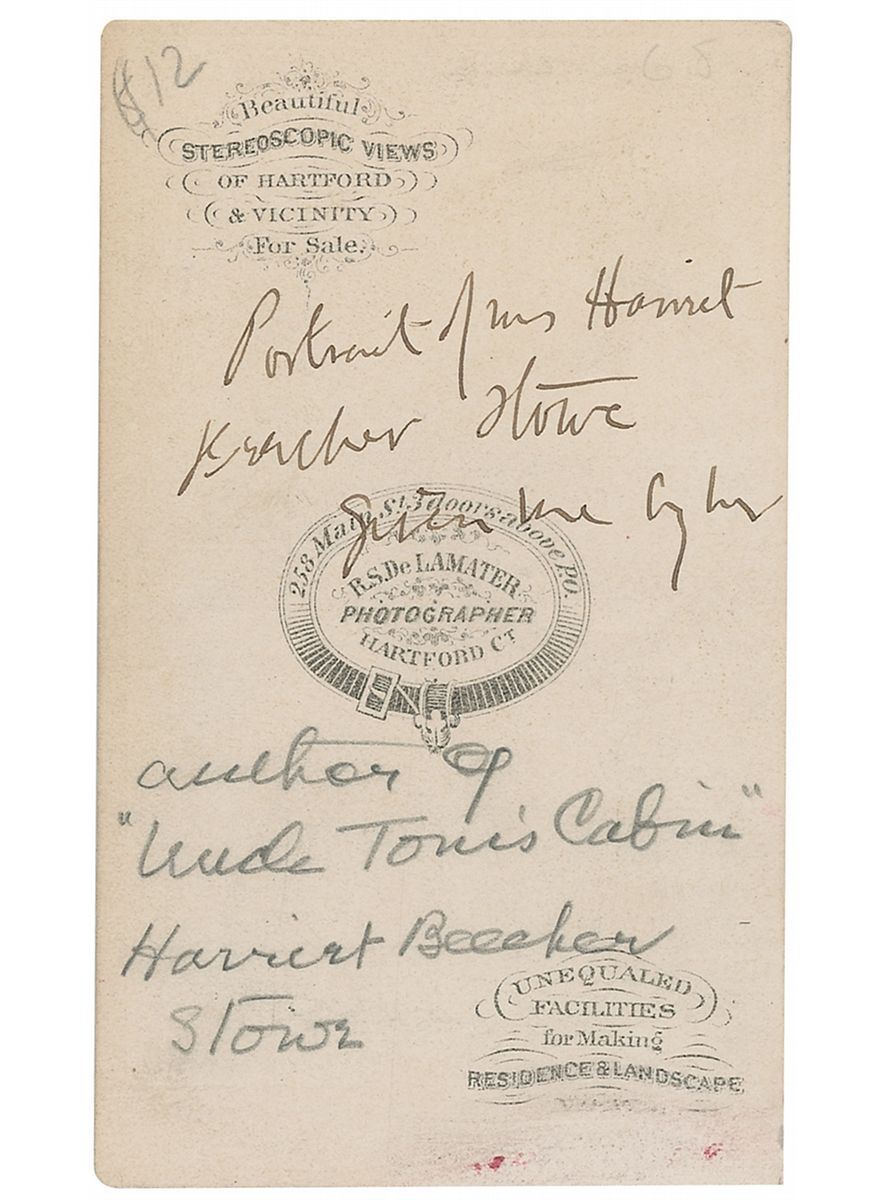 #12
68
Beautiful
STEREOSCOPIC VIEWS
OF HARTFORD
& VICINITY
For Sale.
Portrait of Mrs Harriet
Beecher Stowe
Given me by her
258 Main St. 3 doors above P.O.
R.S. De LAMATER
PHOTOGRAPHER
HARTFORD CT
author of
"Uncle Tom's Cabin"
Harriert Beecher
Stowe
UNEQUALED
FACILITIES
for Making
RESIDENCE & LANDSCAPE